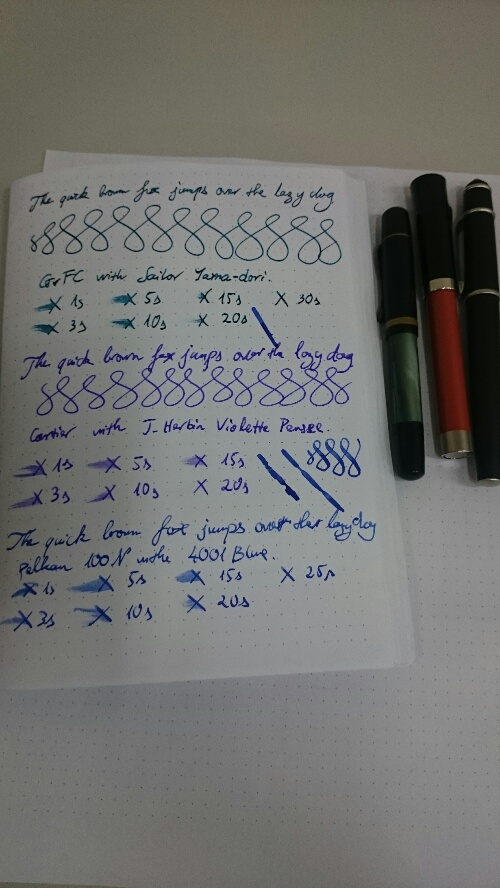 The quick brown fox jumps over the lazy dog
with Sailor Yama-dori.
X 1s X 5s X 15s X 30s
X 3s X 10s X 20s
The quick brown fox jumps over the lazy dog
Cartier with J-Herbin Violette Pensee.
X 1s X 5s X 15s
X 3s X 10s X 20s
The quick brown fox jumps over the lazy dog
Pelikan 100N with 4001 Blue.
X 1s X 5s X 15s X 25s
X 3s X 10s X 20s